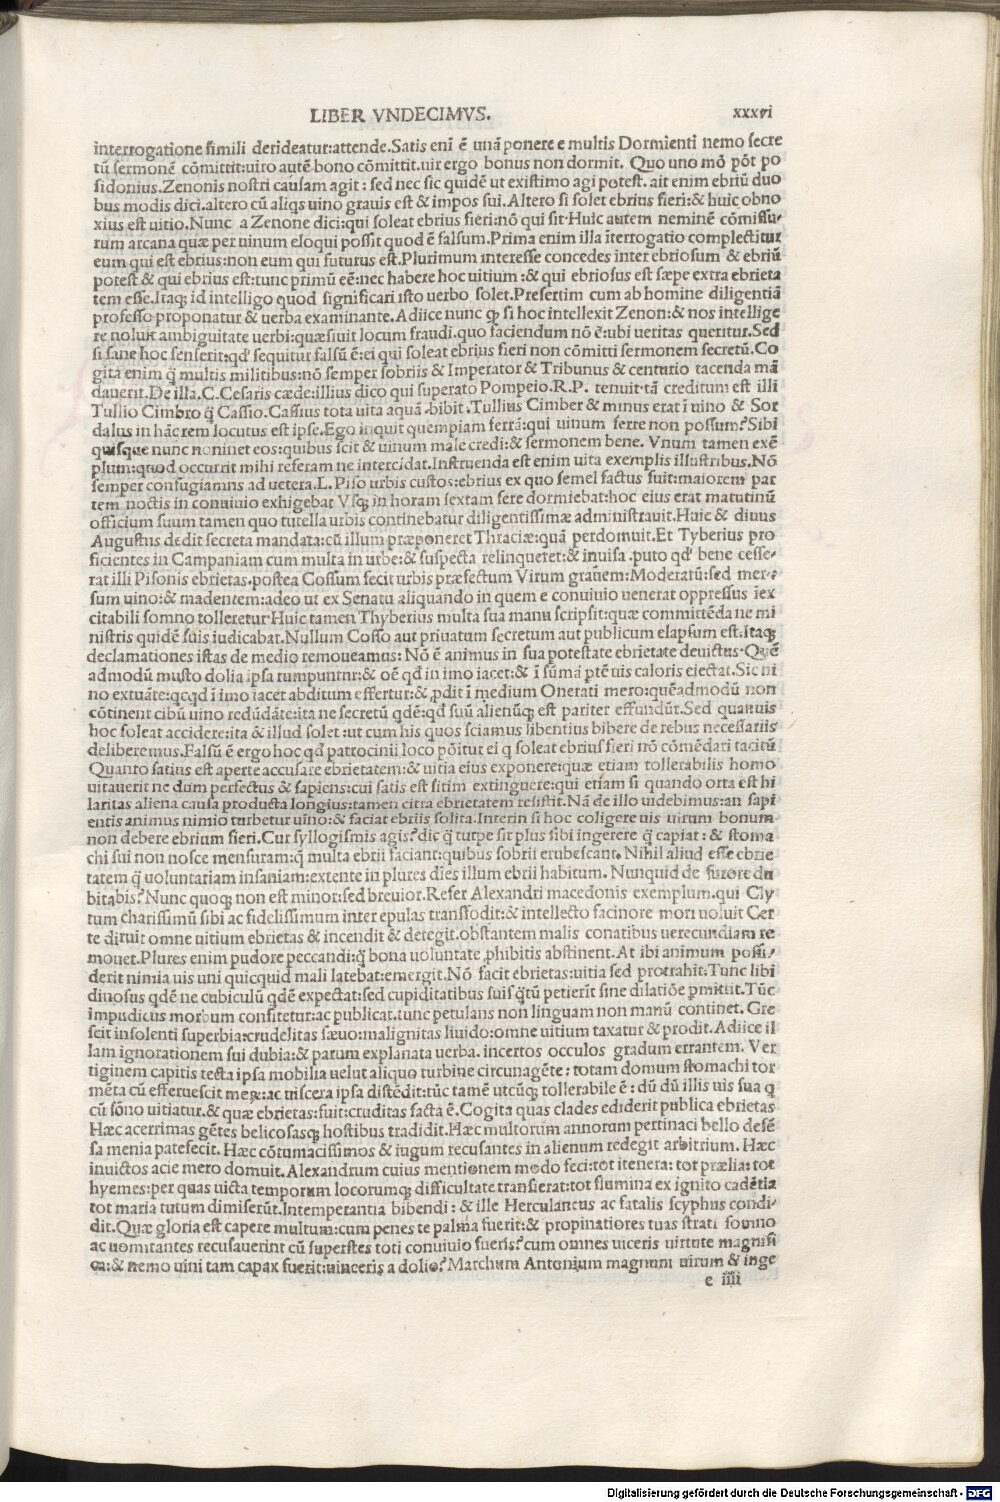 LIBER VNDECIMVS. xxxvi
interrogatione simili derideatur:attende.Satis eni ē unā ponere e multis Dormienti nemo secre
tū sermonē cōmittit:uiro autē bono cōmittit.uir ergo bonus non dormit. Quo uno mō pōt po
sidonius.Zenonis nostri causam agit: sed nec sic quidē ut existimo agi potest. ait enim ebriū duo
bus modis dici.altero cū aliqs uino grauis est & impos sui.Altero si solet ebrius fieri:& huic obno
xius est uitio.Nunc a Zenone dici:qui soleat ebrius fieri:nō qui sit.Huic autem neminē cōmissu-
rum arcana quæ per uinum eloqui possit quod ē falsum.Prima enim illa īterrogatio complectitur
eum qui est ebrius:non eum qui futurus est.Plurimum interesse concedes inter ebriosum & ebriū
potest & qui ebrius est:tunc primū eē:nec habere hoc uitium:& qui ebriosus est sæpe extra ebrieta
tem esse.Itaq; id intelligo quod significari isto uerbo solet.Presertim cum ab homine diligentiā
professo proponatur & uerba examinante.Adiice nunc qp si hoc intellexit Zenon:& nos intellige
re noluit ambiguitate uerbi:quæsiuit locum fraudi.quo faciendum nō ē:ubi ueritas queritur.Sed
si sane hoc senserit:qd' sequitur falsū ē:ei qui soleat ebrius fieri non cōmitti sermonem secretū.Co
gita enim q̄ multis militibus:nō semper sobriis & Imperator & Tribunus & centurio tacenda mā
dauerit.De illa.C.Cesaris cæde:illius dico qui superato Pompeio.R.P. tenuit.tā creditum est illi
Tullio Cimbro q̄ Cassio.Cassius tota uita aquā.bibit.Tullius Cimber & minus erat ī uino & Sor
dalus in hāc rem locutus est ipse.Ego inquit quempiam ferrā:qui uinum ferre non possum?Sibi
quisque nunc nominet eos:quibus scit & uinum male credi:& sermonem bene. Vnum tamen exē
plum:quod occurrit mihi referam ne intercidat.Instruenda est enim uita exemplis illustribus.Nō
semper confugiamns ad uetera.L.Piso urbis custos:ebrius ex quo semel factus fuit:maiorem par
tem noctis in conuiuio exhigebat Vsq; in horam sextam fere dormiebat:hoc eius erat matutinū
officium suum tamen quo tutella urbis continebatur diligentissimæ administrauit.Huic & diuus
Augustus dedit secreta mandata:cū illum præponeret Thraciæ:quā perdomuit.Et Tyberius pro
ficientes in Campaniam cum multa in urbe:& suspecta relinqueret:& inuisa.puto qd' bene cesse-
rat illi Pisonis ebrietas.postea Cossum fecit urbis præfectum Virum grauem:Moderatū:sed mer-
sum uino:& madentem:adeo ut ex Senatu aliquando in quem e conuiuio uenerat oppressus īex
citabili somno tolleretur Huic tamen Thyberius multa sua manu scripsit:quæ committēda ne mi
nistris quidē suis iudicabat.Nullum Cosso aut priuatum secretum aut publicum elapsum est.Itaq;
declamationes istas de medio remoueamus: Nō ē animus in sua potestate ebrietate deuictus.Quē
admodū musto dolia ipsa rumpuntnr:& oē qd in imo iacet:& ī sūmā ptē uis caloris eiectat.Sic ui
no extuāte:qcqd ī imo iacet abditum effertur:& pdit ī medium Onerati mero:quēadmodū non
cōtinent cibū uino redūdāte:ita ne secretū qdē:qd suū alienūq; est pariter effundūt.Sed quanuis
hoc soleat accidere:ita & illud solet :ut cum his quos sciamus libentius bibere de rebus necessariis
deliberemus.Falsū ē ergo hoc qd patrocinii loco pōitur ei q soleat ebrius fieri nō cōmēdari tacitū
Quanto satius est aperte accusare ebrietatem:& uitia eius exponere:quæ etiam tollerabilis homo
uitauerit ne dum perfectus & sapiens:cui satis est sitim extinguere:qui etiam si quando orta est hi
laritas aliena causa producta longius:tamen citra ebrietatem resistit.Nā de illo uidebimus:an sapi
entis animus nimio turbetur uino:& faciat ebriis solita.Interin si hoc coligere uis uirum bonum
non debere ebrium fieri.Cur syllogismis agis?dic q̄ turpe sit plus sibi ingerere q̄ capiat : & stoma
chi sui non nosce mensuram:q̄ multa ebrii faciant:quibus sobrii erubescant. Nihil aliud esse ebrie
tatem q̄ uoluntariam insaniam:extente in plures dies illum ebrii habitum. Nunquid de furore du
bitabis?Nunc quoq; non est minor:sed breuior.Refer Alexandri macedonis exemplum.qui Cly
tum charissimū sibi ac fidelissimum inter epulas transfodit:& intellecto facinore mori uoluit Cer
te diruit omne uitium ebrietas & incendit & detegit.obstantem malis conatibus uerecundiam re
mouet.Plures enim pudore peccandi:q̄ bona uoluntate phibitis abstinent. At ibi animum possi-
derit nimia uis uni quicquid mali latebat:emergit.Nō facit ebrietas:uitia sed protrahit.Tunc libi
dinosus qdē ne cubiculū qdē expectat:sed cupiditatibus suis q̄tū petierit sine dilatiōe pmittit.Tūc
impudicus morbum confitetur:ac publicat.tunc petulans non linguam non manū continet. Cre
scit insolenti superbia:crudelitas sæuo:malignitas liuido:omne uitium taxatur & prodit.Adiice il
lam ignorationem sui dubia:& parum explanata uerba. incertos occulos gradum errantem. Ver
tiginem capitis tecta ipsa mobilia uelut aliquo turbine circunagēte: totam domum stomachi tor
mēta cū efferuescit merz:ac uiscera ipsa distēdit:tūc tamē utcūq; tollerabile ē : dū dū illis uis sua q
cū sōno uitiatur.& quæ ebrietas:fuit:cruditas facta ē.Cogita quas clades ediderit publica ebrietas
Hæc acerrimas gētes belicosasq; hostibus tradidit.Hæc multorum annorum pertinaci bello defē
sa menia patefecit. Hæc cōtumacissimos & iugum recusantes in alienum redegit arbitrium. Hæc
inuictos acie mero domuit.Alexandrum cuius mentionem modo feci:tot itenera: tot prælia: tot
hyemes:per quas uicta temporum locorumq; difficultate transierat:tot flumina ex ignito cadētia
tot maria tutum dimiserūt.Intemperantia bibendi : & ille Herculaneus ac fatalis scyphus condi-
dit.Quæ gloria est capere multum:cum penes te palma fuerit:& propinatiores tuas strati somno
ac uomitantes recusauerint cū superstes toti conuiuio fueris?cum omnes uiceris uirtute magnifi
ca:& nemo uini tam capax fuerit:uinceris a dolio?Marchum Antonium magnum uirum & inge
e iiii
Digitalisierung gefördert durch die Deutsche Forschungsgemeinschaft - DFG